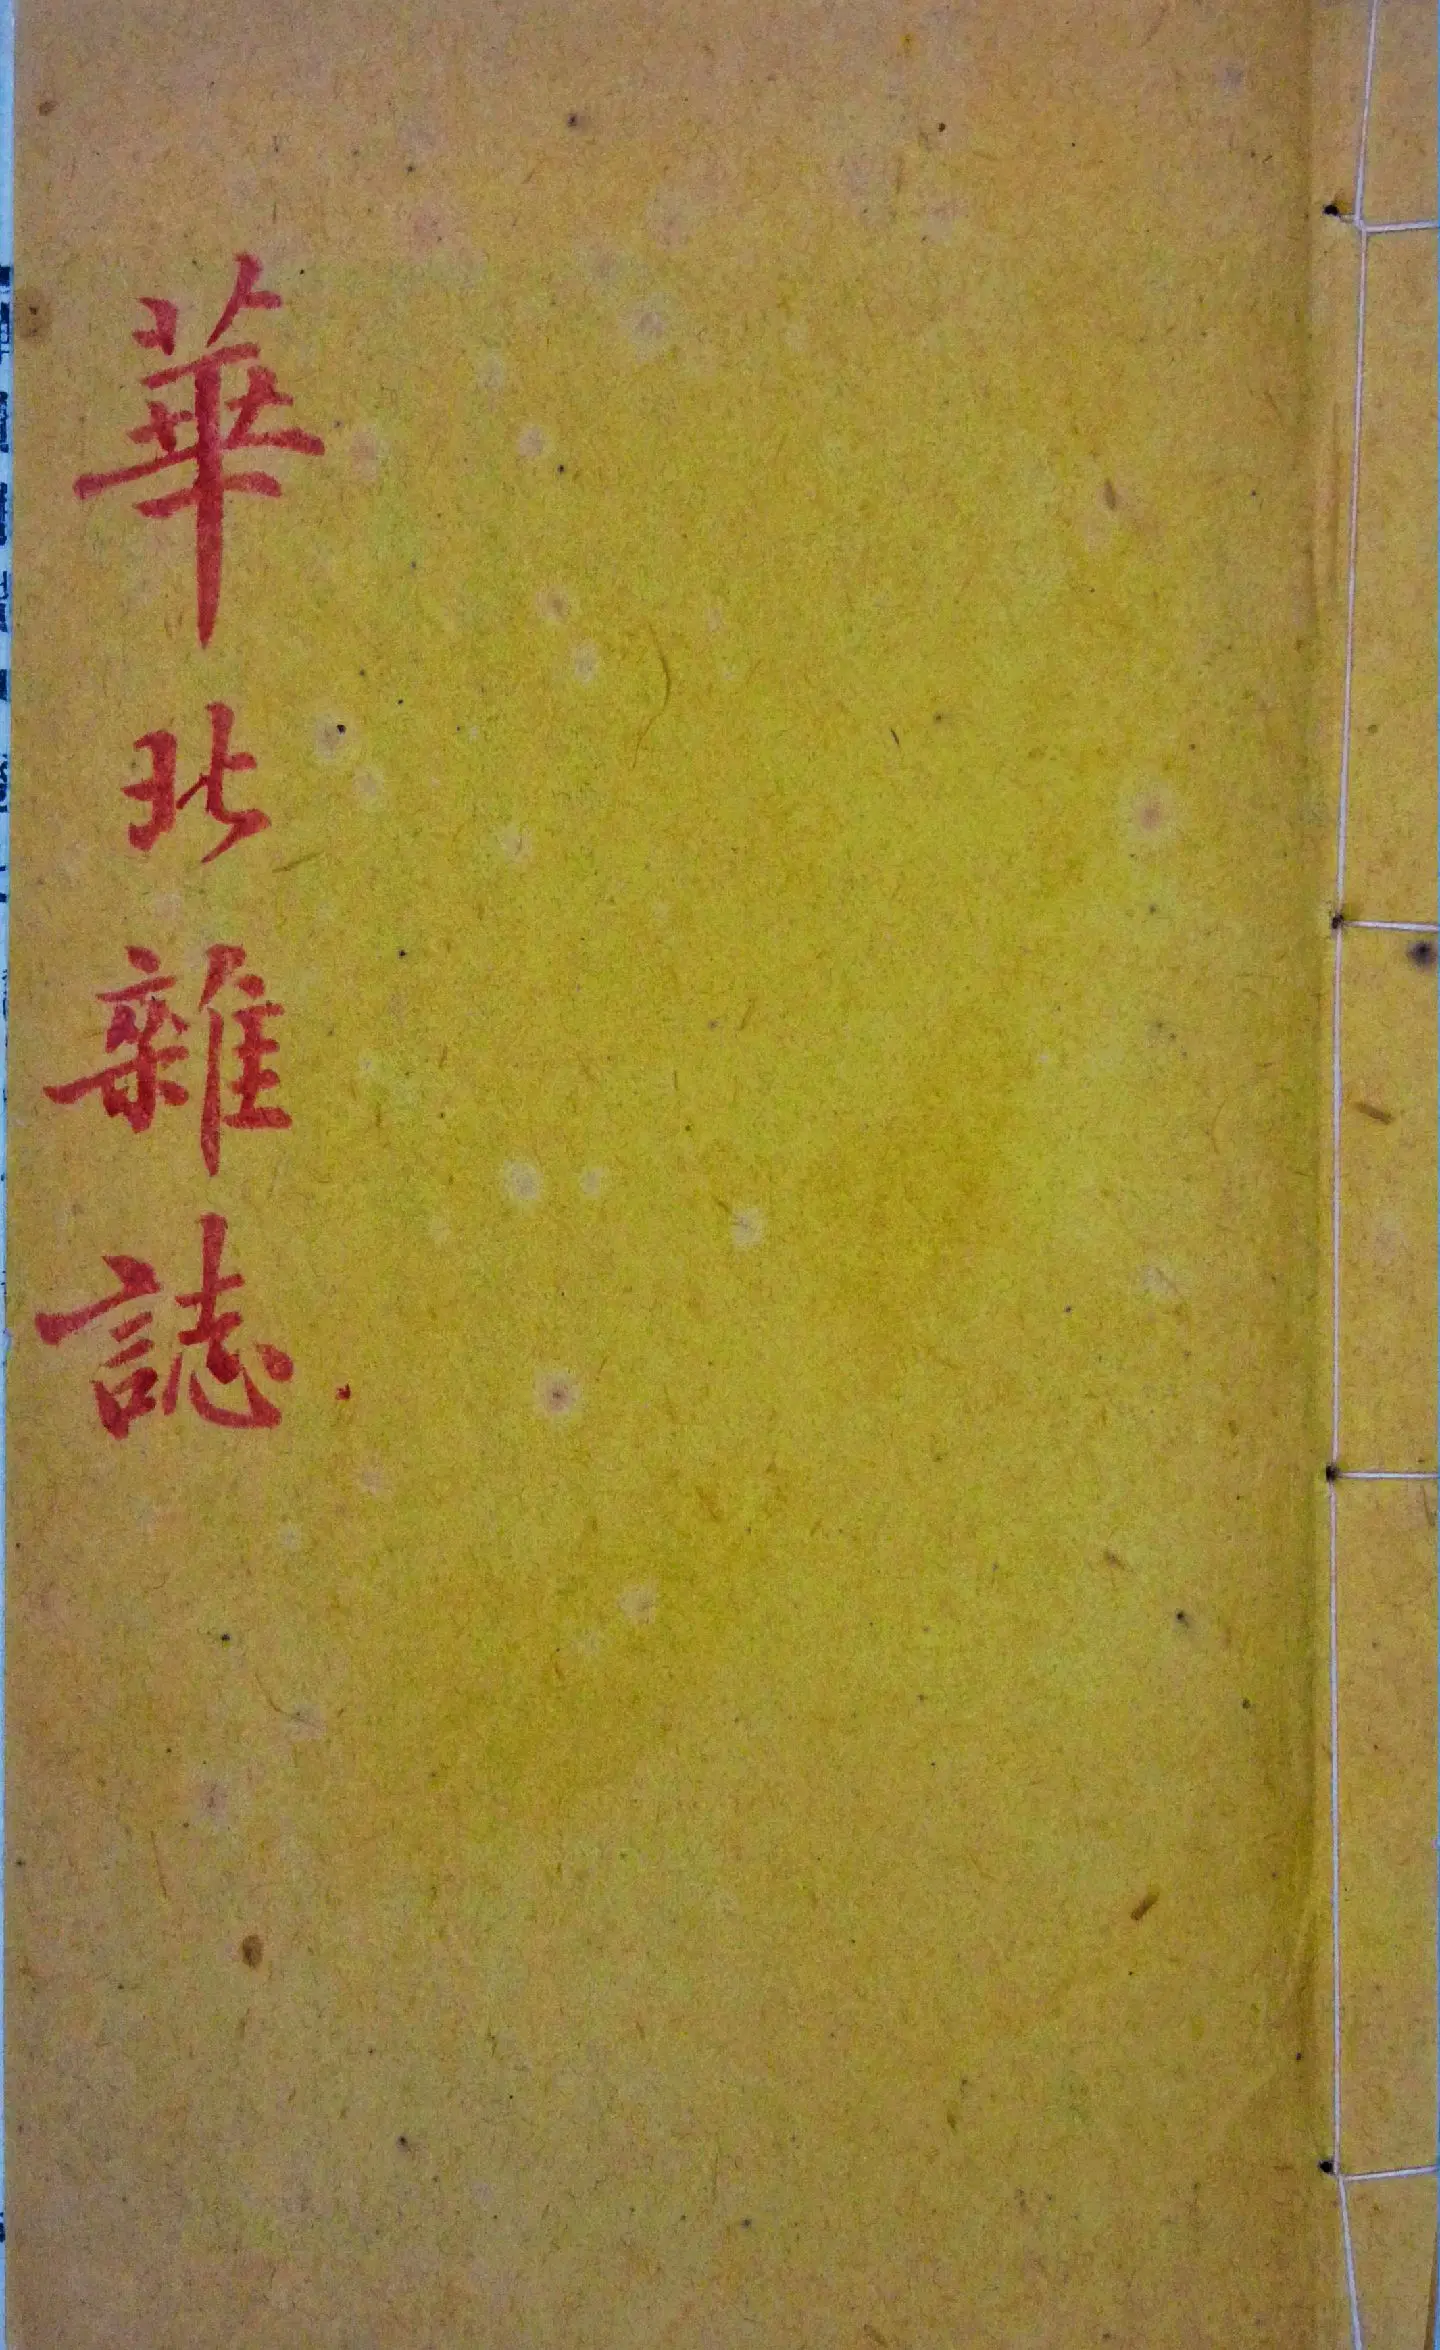 華北雜誌